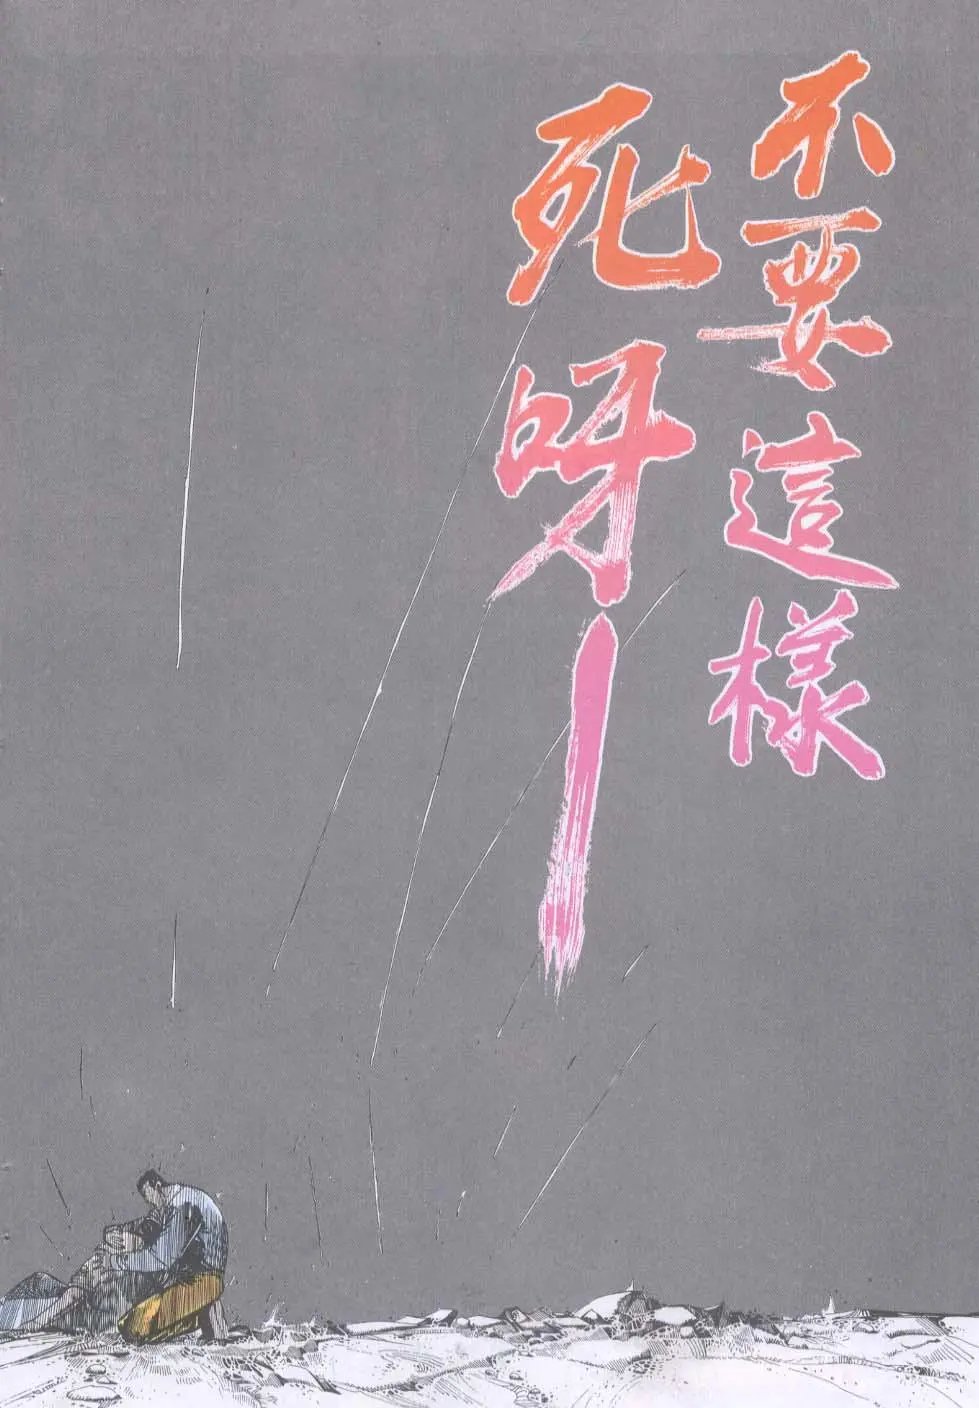 不要這樣
死呀—